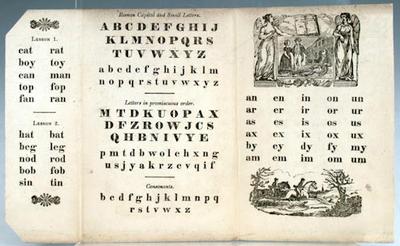 LESSON 1.
cat rat
boy toy
can man
top fop
fan ran
LESSON 2.
hat bat
beg leg
nod rod
bob fob
sin tin
Roman Capital and Small Letters.
A B C D E F G H I J
K L M N O P Q R S
T U V W X Y Z
a b c d e f g h i j k l m
n o p q r s t u v w x y z
Letters in promiscuous order.
M T D K U O P A X
L F Z R G W J C S
Q H B N I V Y E
p m t d b w o l e h x n g
u s j y a k r z c v q i f
Consonants.
b c d f g h j k l m n p q
r s t v w x z
an en in on un
ar er ir or ur
as es is os us
ax ex ix ox ux
by cy dy fy my
am em im om um